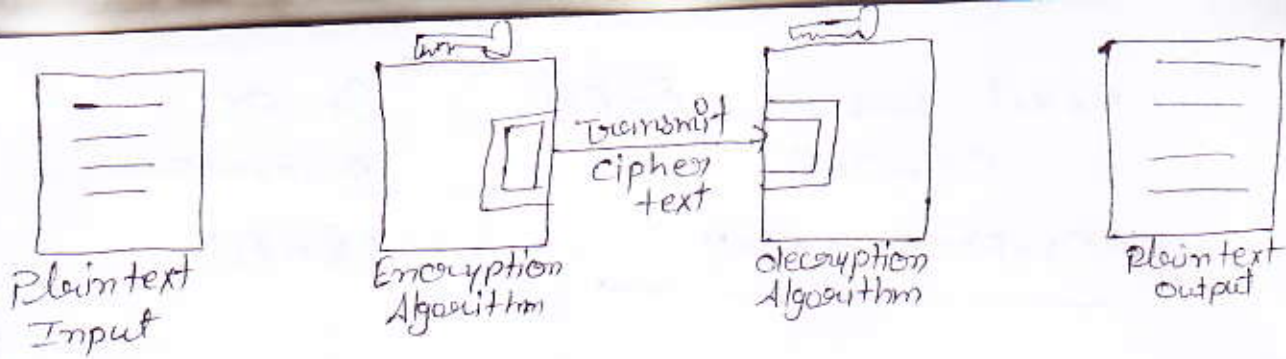 Plaintext
Input
Encryption
Algorithm
Transmit
Cipher
text
decryption
Algorithm
Plaintext
output